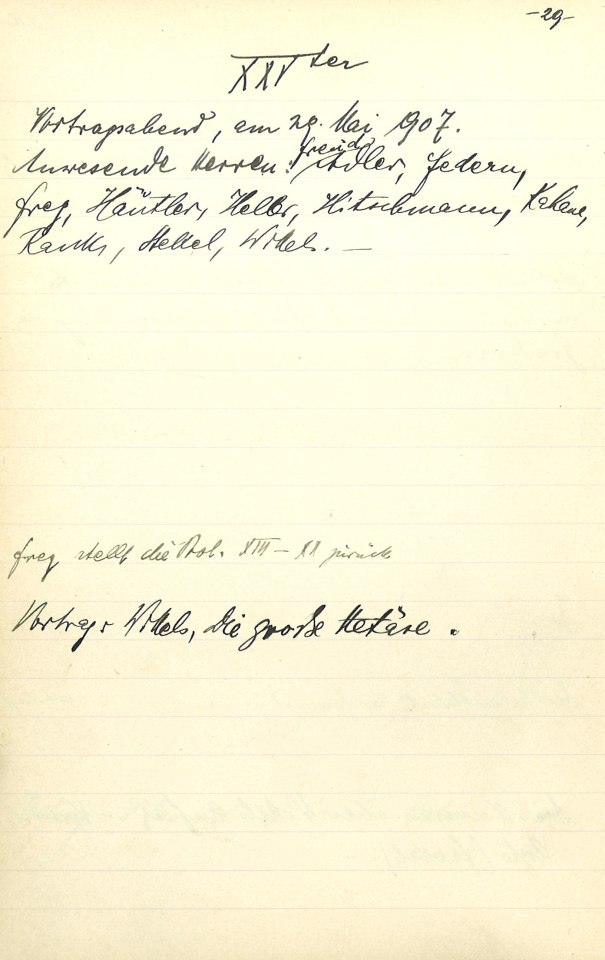 -29-
XXVter
Vortragsabend, am 29. Mai 1907.
Anwesende Herren: Freud, Adler, Federn,
Frey, Häutler, Heller, Hitschmann, Kahane,
Rank, Stekel, Wittels. —
Frey stellt die Prot. XIII – XX zurück
Vortrag: Wittels, Die große Hetäre.